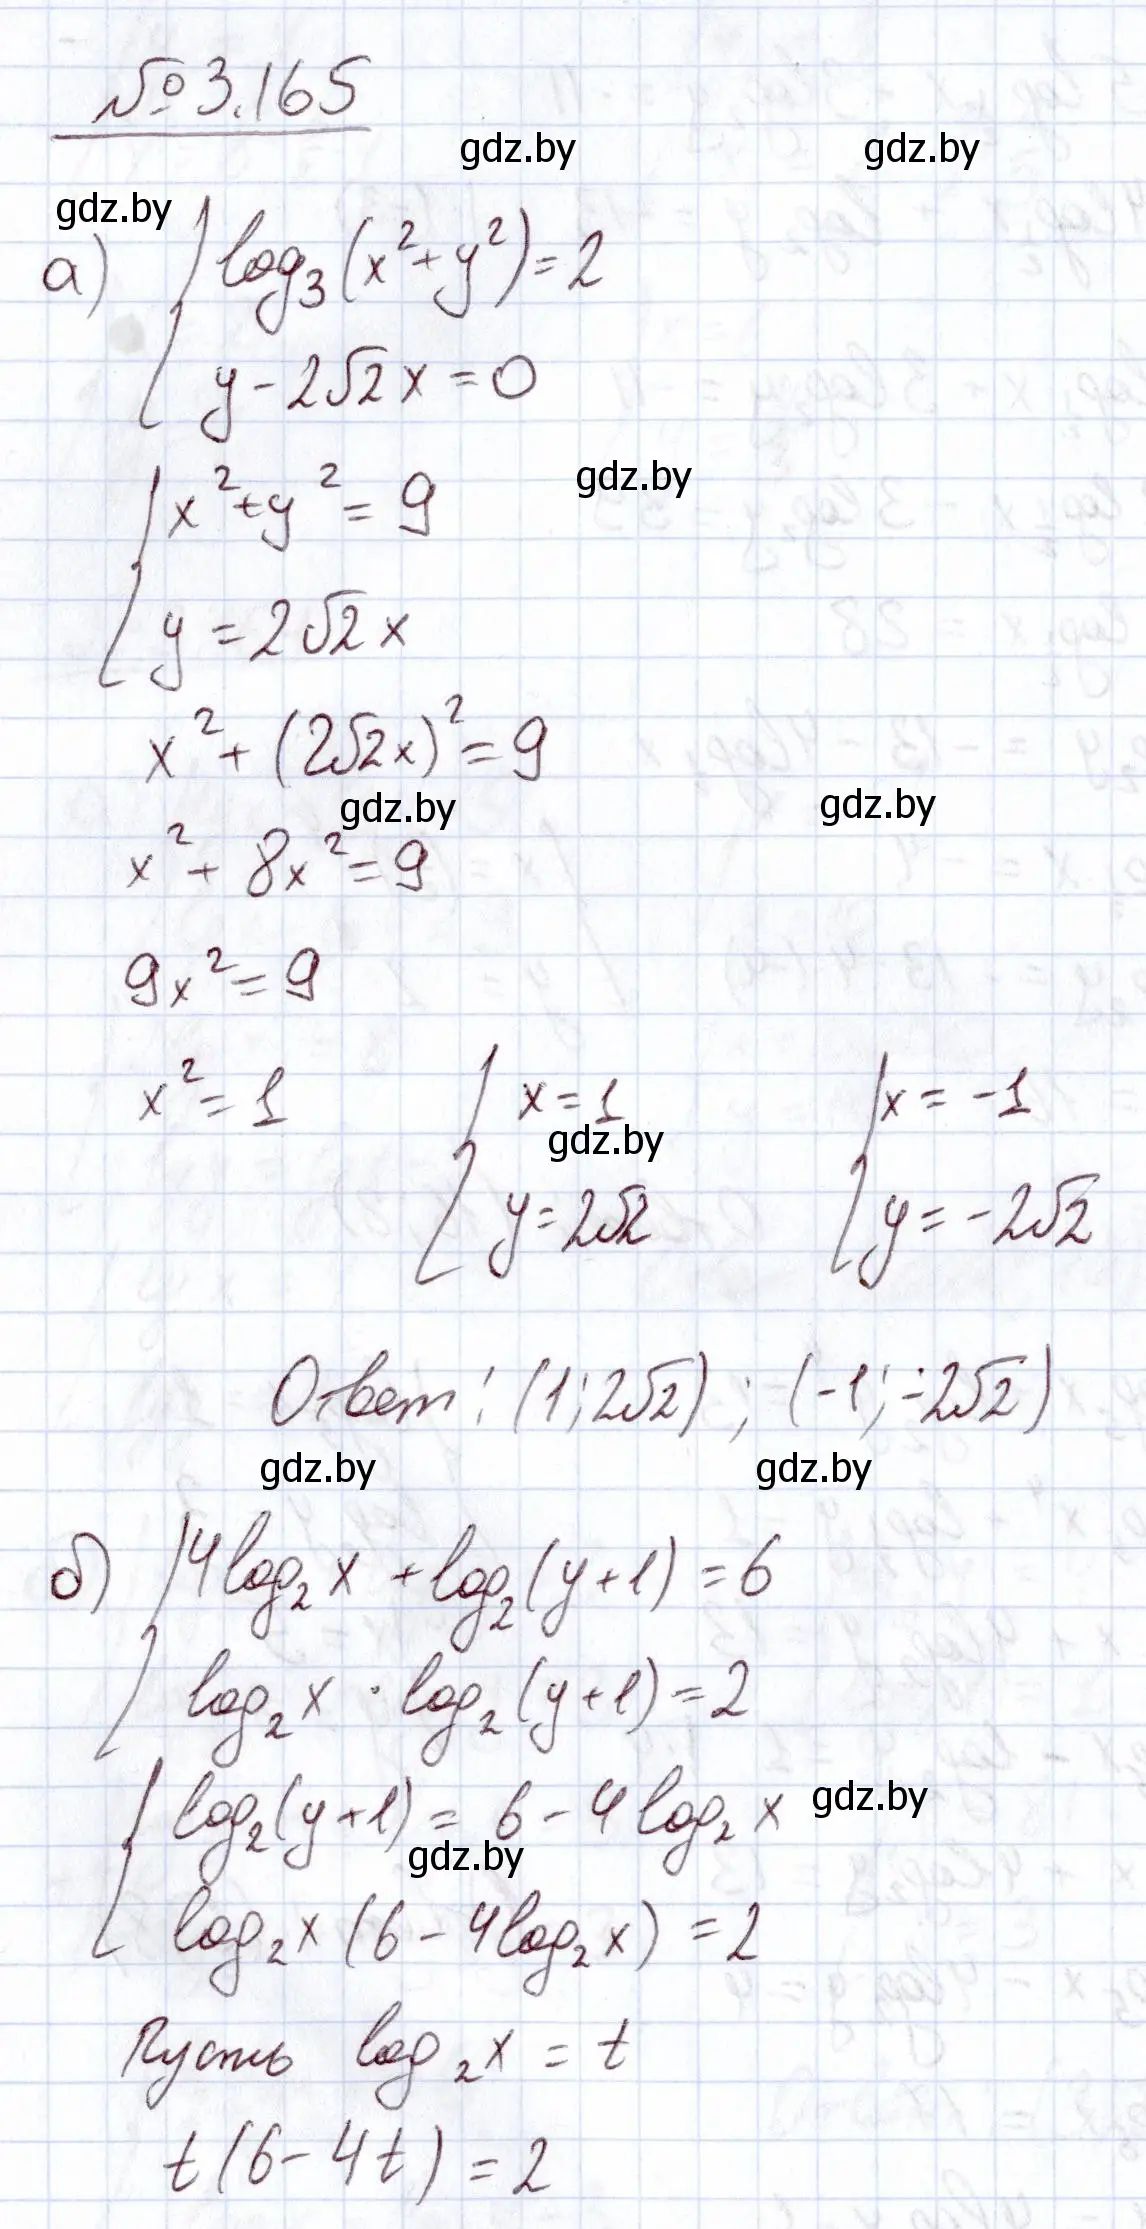 №3.165
gdz.by gdz.by
gdz.by
а) { log₃(x²+y²)=2
y-2√2x=0
gdz.by
{ x²+y²=9
y=2√2x
x²+(2√2x)²=9
gdz.by gdz.by
x²+8x²=9
9x²=9
x²=1 { x=1 { x=-1
gdz.by
y=2√2 y=-2√2
Ответ: (1;2√2); (-1;-2√2)
gdz.by gdz.by
б) { 4log₂x+log₂(y+1)=6
log₂x·log₂(y+1)=2
{ log₂(y+1)=6-4log₂x gdz.by
gdz.by
log₂x(6-4log₂x)=2
Пусть log₂x=t
t(6-4t)=2